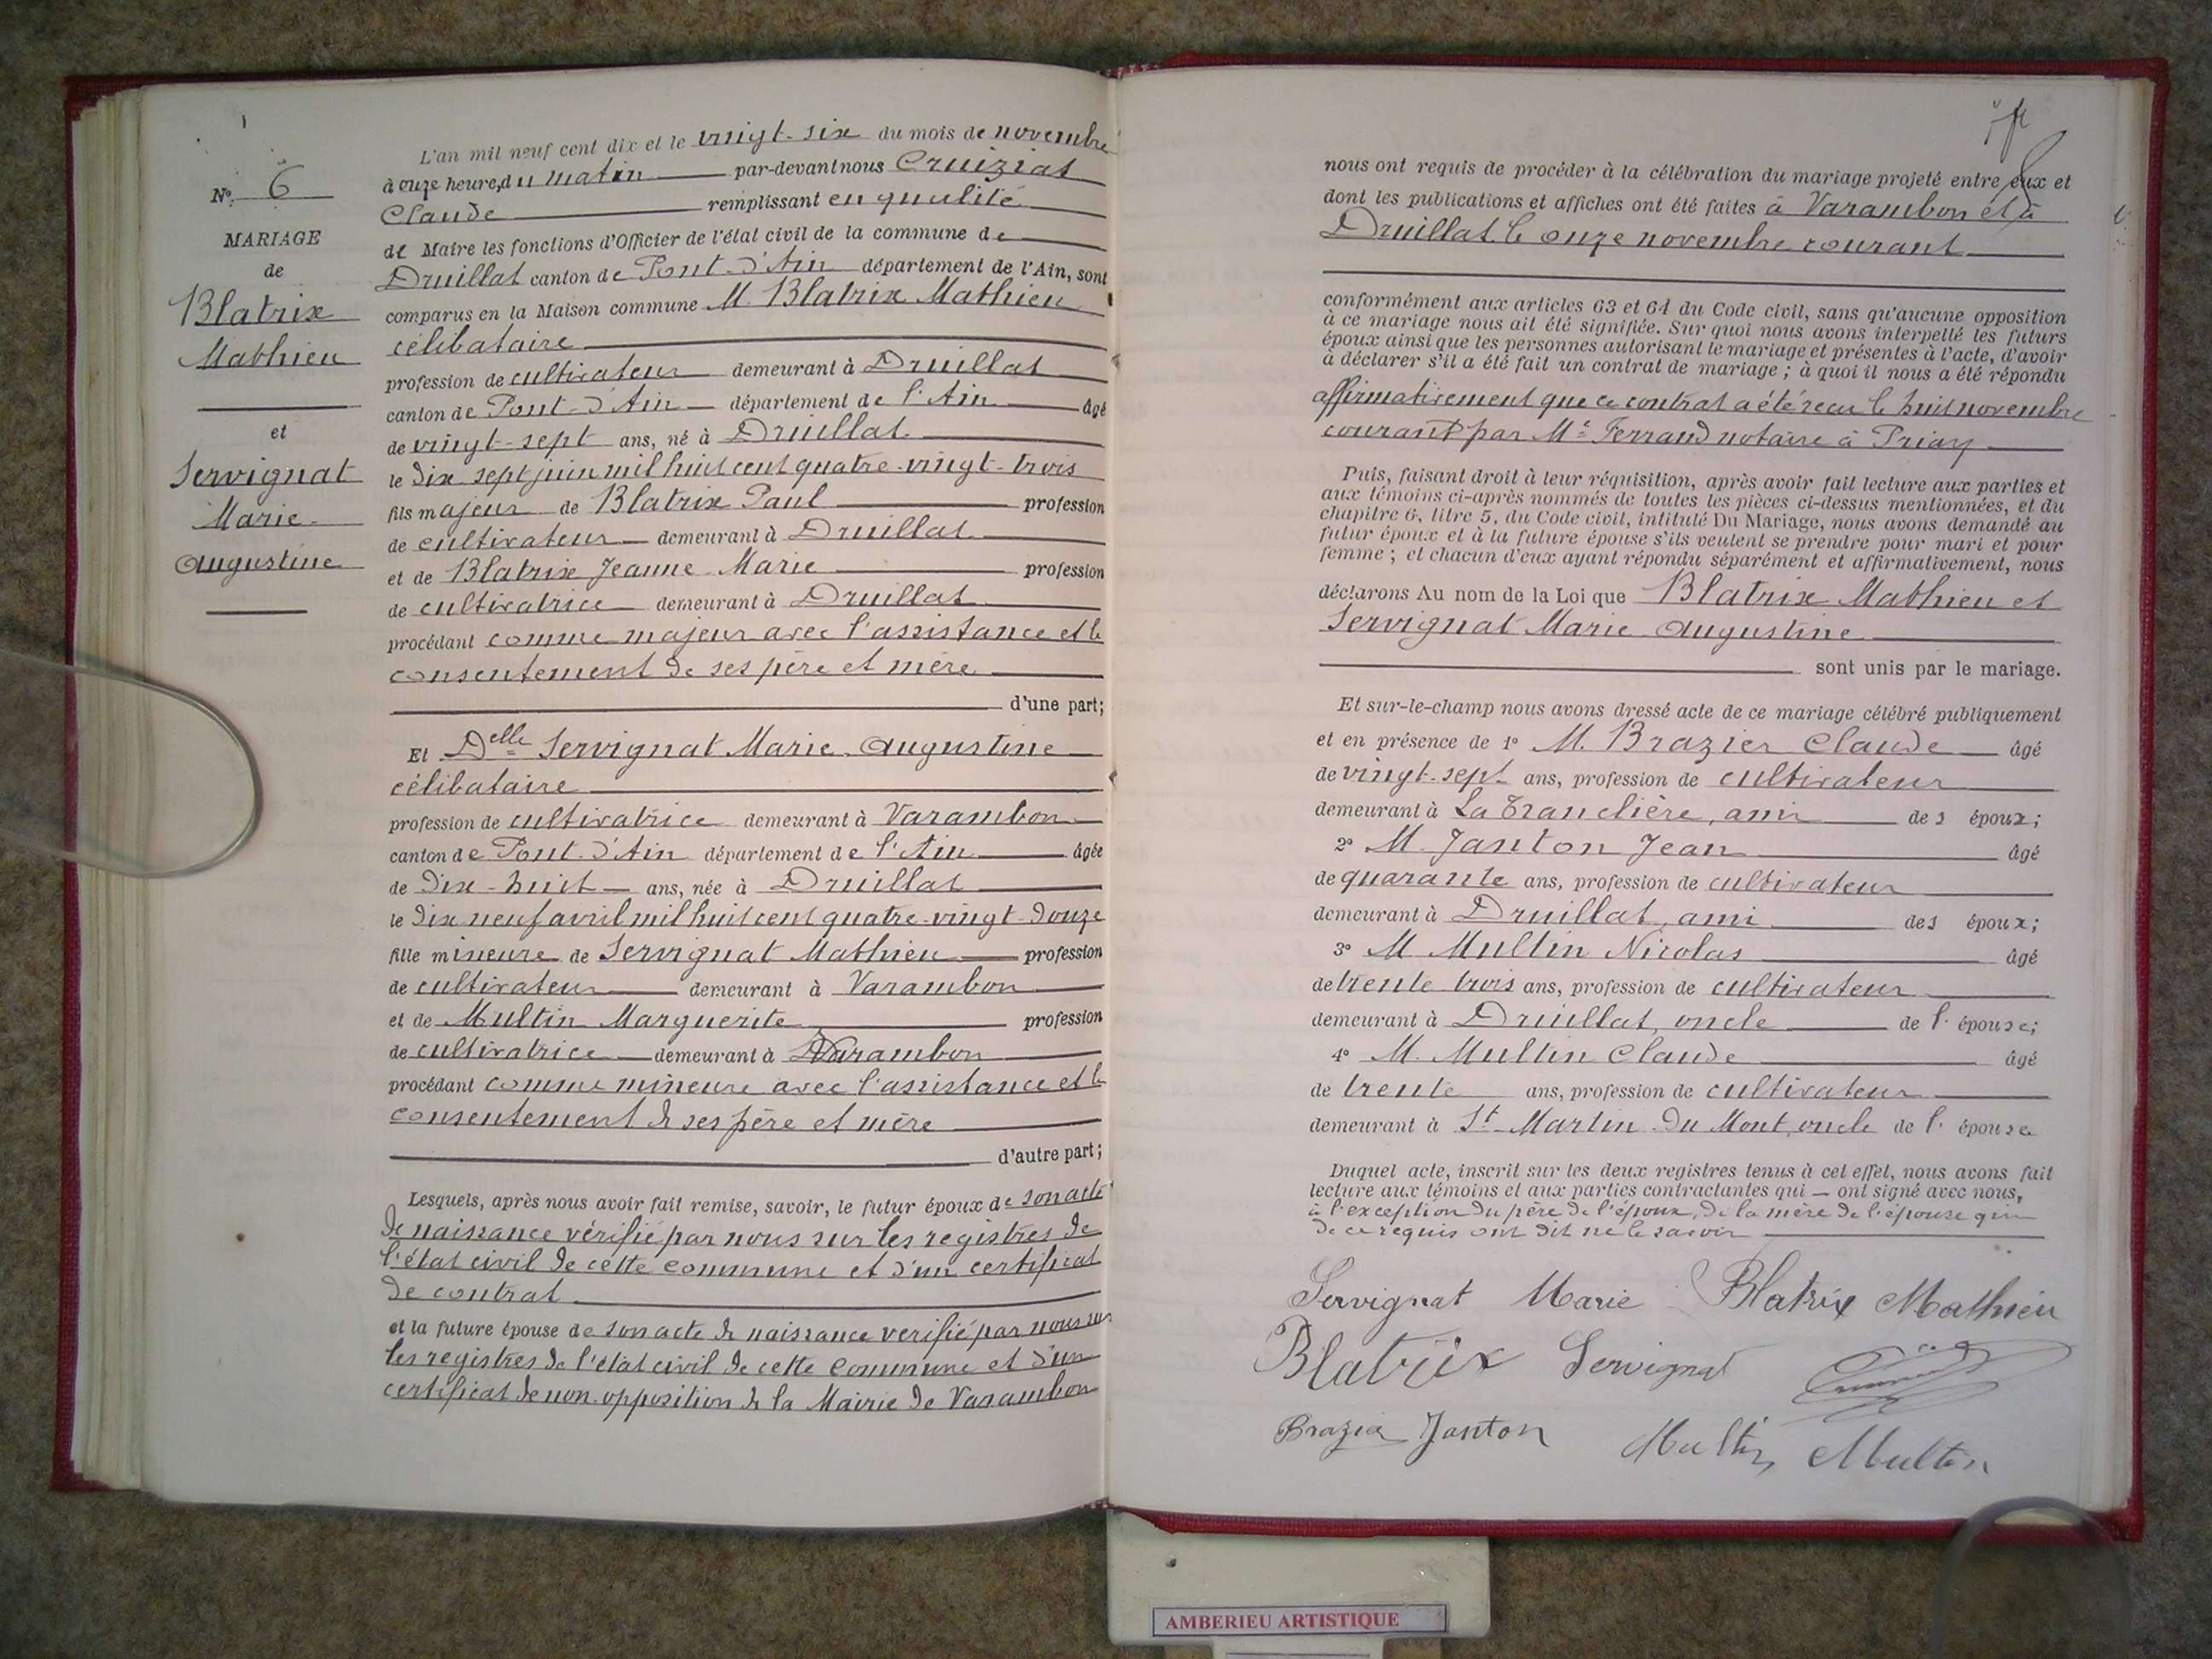 N° 6
MARIAGE
de
Blatrix
Mathieu
et
Servignat
Marie
Augustine
L'an mil neuf cent dix et le vingt-six du mois de novembre
à onze heures du matin par-devant nous Cruiziat
Claude remplissant en qualité
de Maire les fonctions d'Officier de l'état civil de la commune de
Druillat canton de Pont-d'Ain département de l'Ain, sont
comparus en la Maison commune M. Blatrix Mathieu
célibataire
profession de cultivateur demeurant à Druillat
canton de Pont-d'Ain département de l'Ain âgé
de vingt-sept ans, né à Druillat
le dix sept juin mil huit cent quatre-vingt-trois
fils majeur de Blatrix Paul profession
de cultivateur demeurant à Druillat
et de Blatrix Jeanne Marie profession
de cultivatrice demeurant à Druillat
procédant comme majeur avec l'assistance et le
consentement de ses père et mère
d'une part;
Et Delle Servignat Marie Augustine
célibataire
profession de cultivatrice demeurant à Varambon
canton de Pont-d'Ain département de l'Ain âgée
de dix-huit ans, née à Druillat
le dix neuf avril mil huit cent quatre-vingt-douze
fille mineure de Servignat Mathieu profession
de cultivateur demeurant à Varambon
et de Multin Marguerite profession
de cultivatrice demeurant à Varambon
procédant comme mineure avec l'assistance et le
consentement de ses père et mère
d'autre part;
Lesquels, après nous avoir fait remise, savoir, le futur époux de son acte
de naissance vérifié par nous sur les registres de
l'état civil de cette commune et d'un certificat
de contrat
et la future épouse de son acte de naissance verifié par nous sur
les registres de l'état civil de cette commune et d'un
certificat de non-opposition de la Mairie de Varambon
nous ont requis de procéder à la célébration du mariage projeté entre eux et
dont les publications et affiches ont été faites à Varambon et à
Druillat le onze novembre courant
conformément aux articles 63 et 64 du Code civil, sans qu'aucune opposition
à ce mariage nous ait été signifiée. Sur quoi nous avons interpellé les futurs
époux ainsi que les personnes autorisant le mariage et présentes à l'acte, d'avoir
à déclarer s'il a été fait un contrat de mariage ; à quoi il nous a été répondu
affirmativement que ce contrat a été reçu le huit novembre
courant par Me Ferrand notaire à Priay
Puis, faisant droit à leur réquisition, après avoir fait lecture aux parties et
aux témoins ci-après nommés de toutes les pièces ci-dessus mentionnées, et du
chapitre 6, titre 5, du Code civil, intitulé Du Mariage, nous avons demandé au
futur époux et à la future épouse s'ils veulent se prendre pour mari et pour
femme ; et chacun d'eux ayant répondu séparément et affirmativement, nous
déclarons Au nom de la Loi que Blatrix Mathieu et
Servignat Marie Augustine
sont unis par le mariage.
Et sur-le-champ nous avons dressé acte de ce mariage célébré publiquement
et en présence de 1° M. Brazier Claude âgé
de vingt-sept ans, profession de cultivateur
demeurant à La Tranclière, ami des époux;
2° M. Janton Jean âgé
de quarante ans, profession de cultivateur
demeurant à Druillat, ami des époux;
3° M Multin Nicolas âgé
de trente trois ans, profession de cultivateur
demeurant à Druillat, oncle de l' épouse;
4° M. Multin Claude âgé
de trente ans, profession de cultivateur
demeurant à St Martin du Mont, oncle de l' épouse
Duquel acte, inscrit sur les deux registres tenus à cet effet, nous avons fait
lecture aux témoins et aux parties contractantes qui — ont signé avec nous,
à l'exception du père de l'époux, de la mère de l'épouse qui
de ce requis ont dit ne le savoir
Servignat Marie Blatrix Mathieu
Blatrix Servignat
Brazier Janton Multin Multin
AMBERIEU ARTISTIQUE